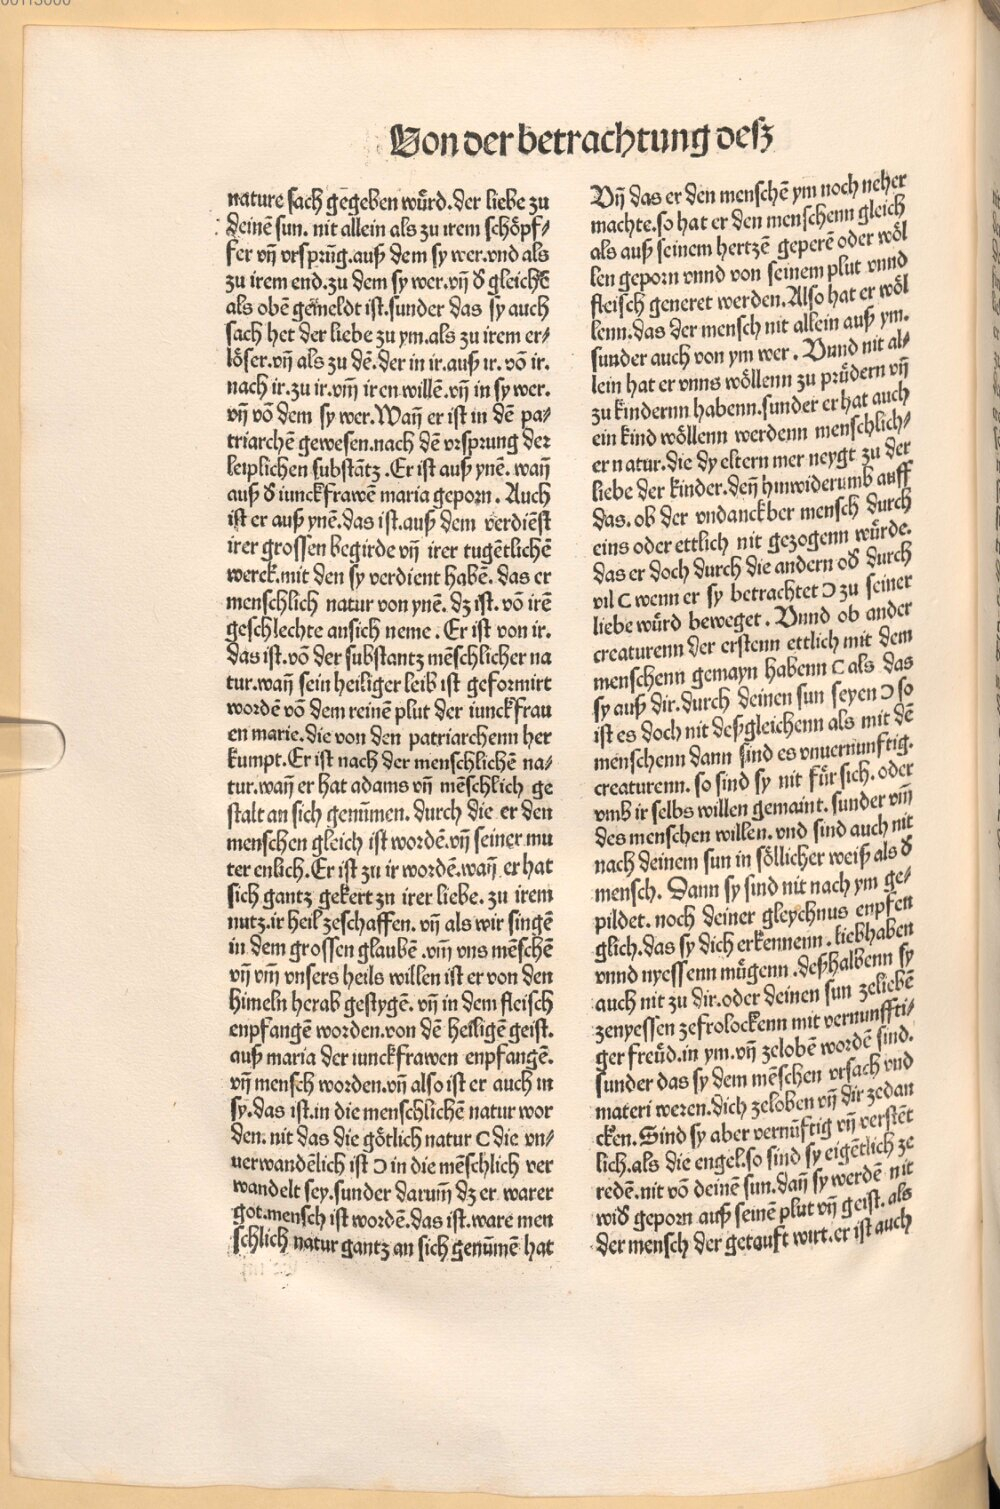 Von der betrachtung deß
nature sach gegeben wu̎rd.der liebe zu
deinē sun. nit allein als zu irem schöpf⸗
fer vn̄ vrsprūg.auß dem sy wer.vnd als
zu irem end.zu dem sy wer.vn̄ ď gleichē
als obē gemeldt ist.sunder das sy auch
sach het der liebe zu ym.als zu irem er⸗
löser.vn̄ als zu dē.der in ir.auß ir.vō ir.
nach ir.zu ir.vm̄ iren willē.vn̄ in sy wer.
vn̄ vō dem sy wer.Wan̄ er ist in dē pa⸗
triarchē gewesen.nach dē vrsprung der
leiplichen substātz.Er ist auß ynē.wan̄
auß ď iunckfrawē maria geporn. Auch
ist er auß ynē.das ist.auß dem verdiēst
irer grossen begirde vn̄ irer tugētlichē
werck.mit den sy verdient habē. das er
menschlich natur von ynē.dz ist.vō irē
geschlechte ansich neme. Er ist von ir.
das ist.vō der substantz mēschlicher na
tur.wan̄ sein heiliger leib ist geformirt
wordē vō dem reinē plut der iunckfrau
en marie.die von den patriarchenn her
kumpt.Er ist nach der menschlichē na⸗
tur.wan̄ er hat adams vn̄ mēschlich ge
stalt an sich genūmen. durch die er den
menschen gleich ist wordē.vn̄ seiner mu
ter enlich.Er ist zu ir wordē.wan̄ er hat
sich gantz gekert zu irer liebe. zu irem
nutz.ir heil zeschaffen. vn̄ als wir singē
in dem grossen glaubē.vm̄ vns mēschē
vn̄ vm̄ vnsers heils willen ist er von den
himeln herab gestygē. vn̄ in dem fleisch
enpfangē worden.von dē heiligē geist.
auß maria der iunckfrawen enpfangē.
vn̄ mensch worden.vn̄ also ist er auch in
sy.das ist.in die menschlichē natur wor
den. nit das die götlich natur C die vn⸗
uerwandēlich ist Ɔ in die mēschlich ver
wandelt sey.sunder darum̄ dz er warer
got.mensch ist wordē.das ist.ware men
schlich natur gantz an sich genūmē hat
Vn̄ das er den menschē ym noch neher
machte.so hat er den menschenn gleich
als auß seinem hertzē geperē oder wöl
len geporn vnnd von seinem plut vnnd
fleisch generet werden.Also hat er wöl
lenn.das der mensch nit allein auß ym.
sunder auch von ym wer. Vnnd nit al⸗
lein hat er vnns wöllenn zu pru̎dern vn̄
zu kindernn habenn.sunder er hat auch
ein kind wöllenn werdenn menschlich⸗
er natur.die dy eltern mer neygt zu der
liebe der kinder.den̄ hinwiderumb auff
das. ob der vndanckber mensch durch
eins oder ettlich nit gezogenn wu̎rde.
das er doch durch die andern oď durch
vil C wenn er sy betrachtet Ɔ zu seiner
liebe wu̎rd beweget. Vnnd ob ander
creaturenn der erstenn ettlich mit dem
menschenn gemayn habenn C als das
sy auß dir.durch deinen sun seyen Ɔ so
ist es doch nit deßgleichenn als mit dē
menschenn dann sind es vnuernunftig.
creaturenn. so sind sy nit fu̎r sich. oder
vmb ir selbs willen gemaint. sunder vm̄
des menschen willen. vnd sind auch nit
nach deinem sun in söllicher weiß als ď
mensch. Dann sy sind nit nach ym ge⸗
pildet. noch deiner gleychnus enpfen
glich.das sy dich erkennenn. liebhaben
vnnd nyessenn mu̎genn. deßhalbenn sy
auch nit zu dir.oder deinen sun zeliebē
zenyessen zefrolockenn mit vernunffti⸗
ger freu̎d.in ym.vn̄ zelobē wordē sind.
sunder das sy dem mēschen vrsach vnd
materi weren.dich zeloben vn̄ dir zedan
cken. Sind sy aber vernūftig vn̄ verstēt
lich.als die engel.so sind sy eigētlich ze
redē.nit vō deinē sun.dan̄ sy werdē nit
wiď geporn auß seinē plut vn̄ geist. als
der mensch der getauft wirt.er ist auch